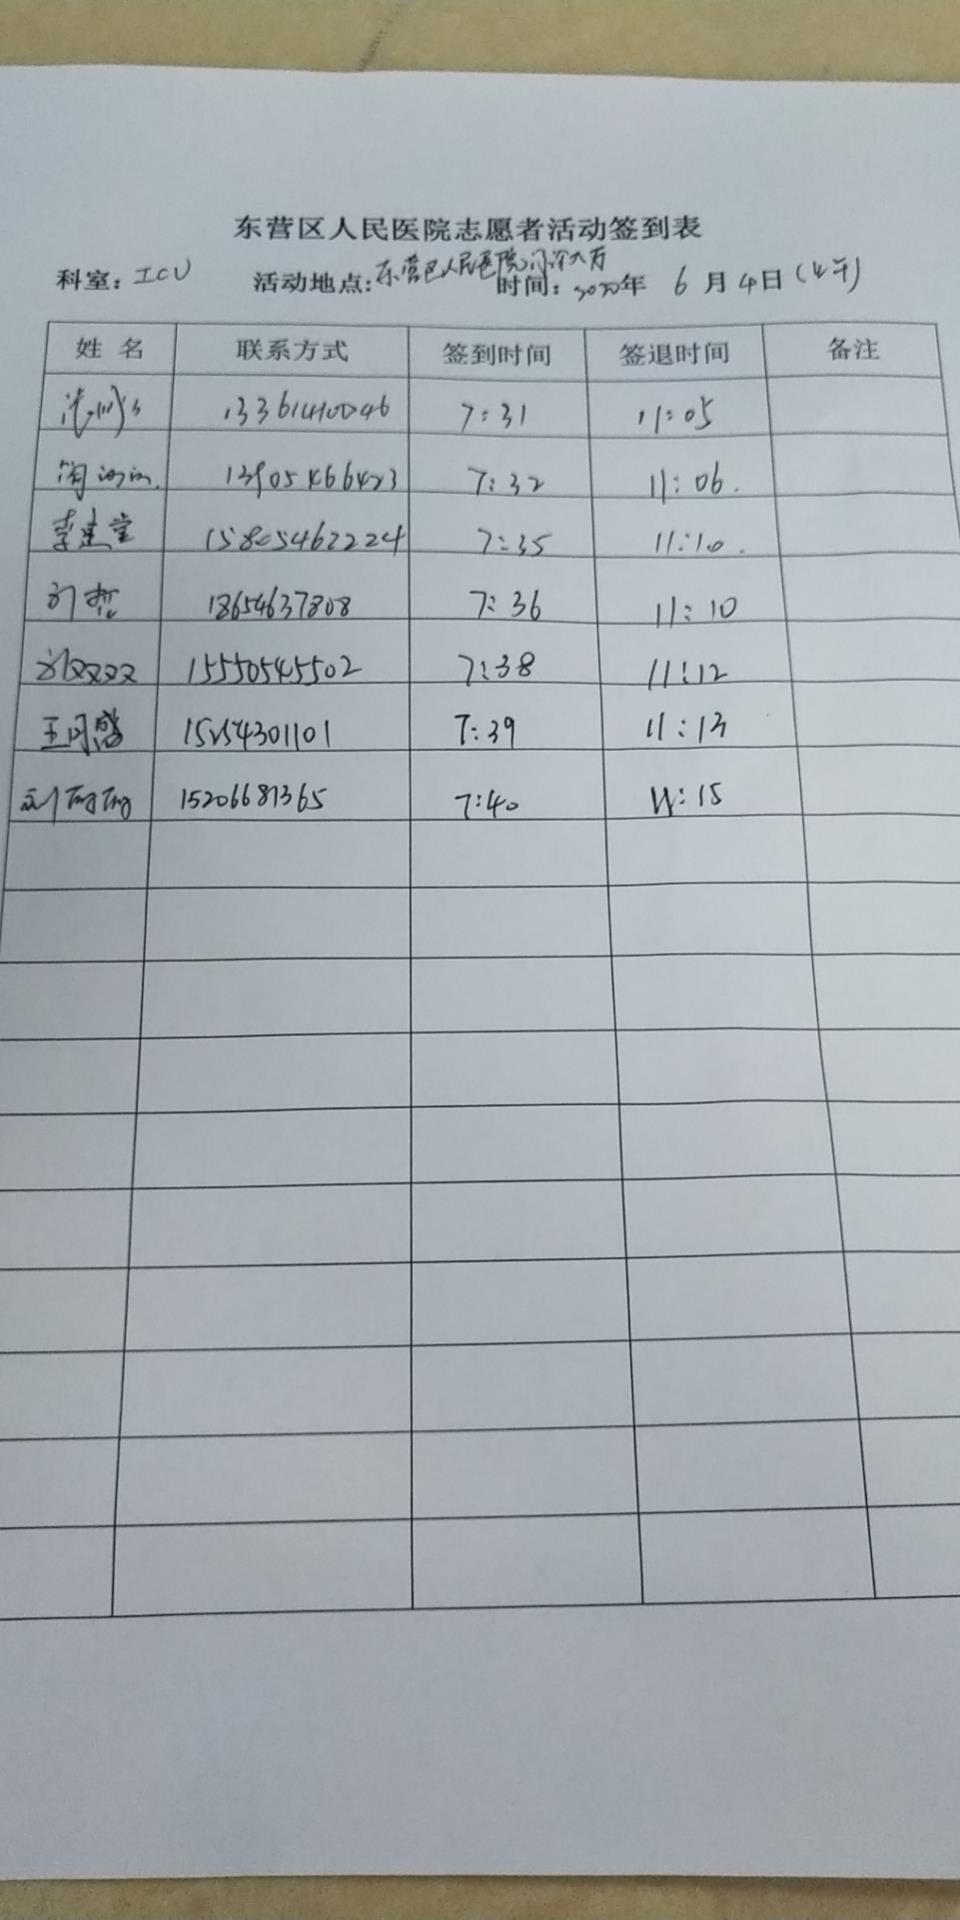 东营区人民医院志愿者活动签到表
科室：ICU 活动地点:东营区人民医院门诊大厅 时间：2020年 6 月 4日（上午）
姓 名 联系方式 签到时间 签退时间 备注
13361410046 7:31 11:05
13905466423 7:32 11:06.
李建堂 15865462224 7:35 11:10.
刘哲 18654637808 7:36 11:10
刘双双 15550545502 7:38 11:12
王同盛 15254301101 7:39 11:13
刘丽丽 15206681365 7:40 11:15